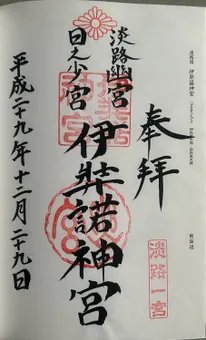 奉拝
淡路幽宮
日之少宮
伊弉諾神宮
淡路一宮
平成二十九年十二月二十九日